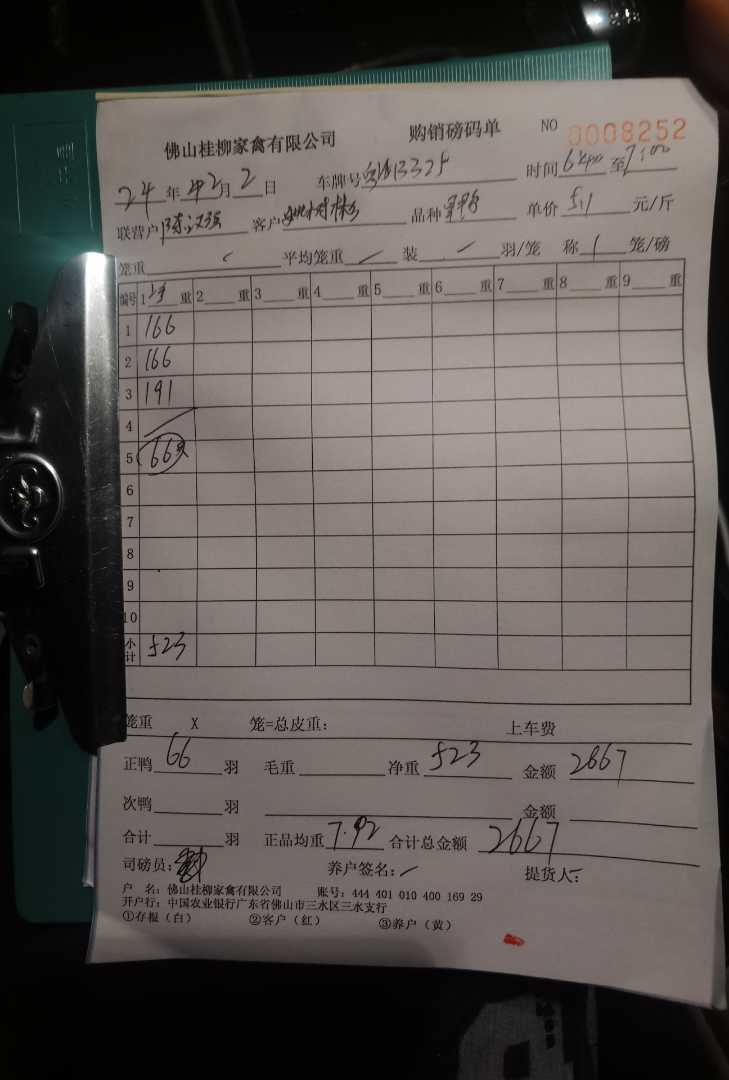 佛山桂柳家禽有限公司 购销磅码单 NO 0008252
24年 2月2日 车牌号 时间 至7:00
联营户 客户 品种 单价5.1元/斤
笼重 平均笼重 装 羽/笼 称1笼/磅
编号 1 重 2 重 3 重 4 重 5 重 6 重 7 重 8 重 9 重
1 166
2 166
3 191
4
5 66
6
7
8
9
10
小计 523
笼重 X 笼=总皮重: 上车费
正鸭66羽 毛重 净重523 金额2667
次鸭 羽 金额
合计 羽 正品均重7.92 合计总金额2667
司磅员: 养户签名: 提货人:
户 名: 佛山桂柳家禽有限公司 账号: 444 401 010 400 169 29
开户行: 中国农业银行广东省佛山市三水区三水支行
①存根(白) ②客户(红) ③养户(黄)